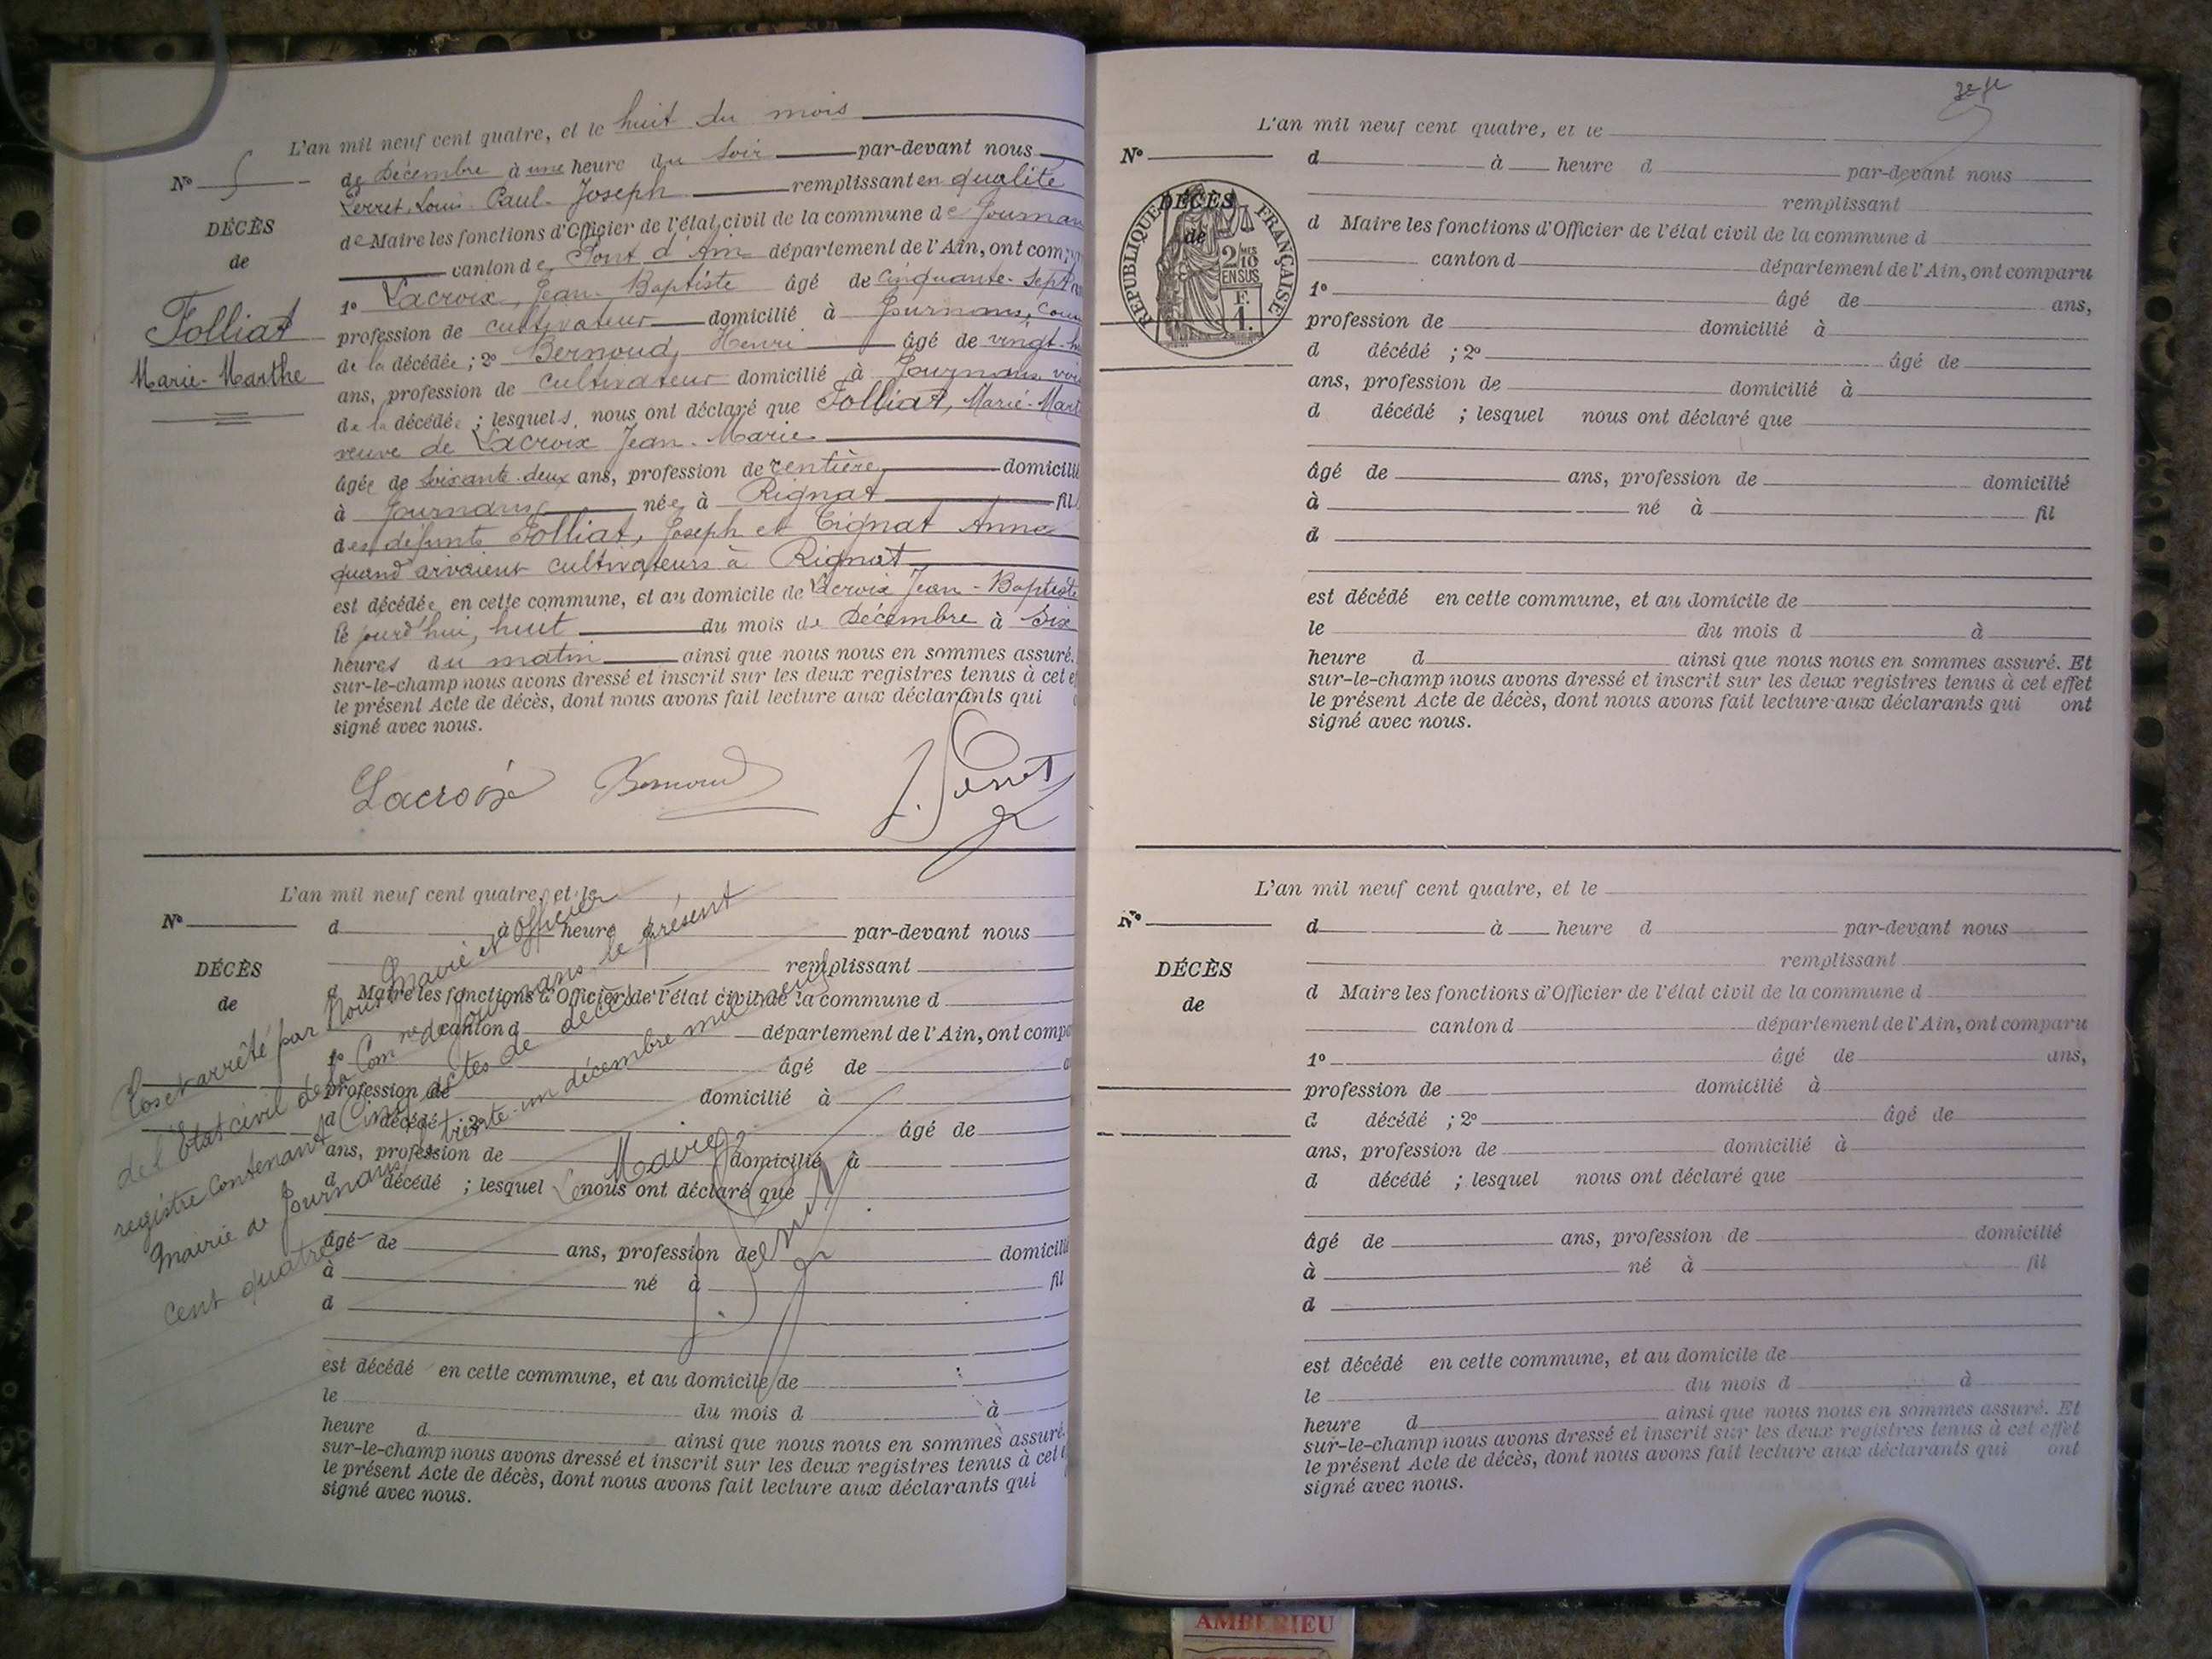 L'an mil neuf cent quatre, et le huit du mois
N° 5
de Décembre à une heure du Soir par-devant nous
Perret, Louis Paul Joseph remplissant en qualité
DÉCÈS
de
Folliat
Marie-Marthe
de Maire les fonctions d'Officier de l'état civil de la commune de Journans
canton de Pont d'Ain département de l'Ain, ont comp
1° Lacroix, Jean-Baptiste âgé de cinquante-sept
profession de cultivateur domicilié à Journans, cous
de la décédée ; 2° Bernoud, Henri âgé de vingt-h
ans, profession de cultivateur domicilié à Journans, voi
de la décédée ; lesquels nous ont déclaré que Folliat, Marie-Mart
veuve de Lacroix Jean-Marie
âgée de soixante-deux ans, profession de rentière, domicilié
à Journans née à Rignat fil
des défunts Folliat, Joseph et Tignat Anne
quand vivaient cultivateurs à Rignat
est décédée en cette commune, et au domicile de Lacroix Jean-Baptiste
le jourd'hui, huit du mois de Décembre à Six
heures du matin ainsi que nous nous en sommes assuré.
sur-le-champ nous avons dressé et inscrit sur les deux registres tenus à cet e
le présent Acte de décès, dont nous avons fait lecture aux déclarants qui
signé avec nous.
Lacroix Bernoud J. Perret
L'an mil neuf cent quatre, et le
N°
d à heure d par-devant nous
remplissant
DÉCÈS
de
d Maire les fonctions d'Officier de l'état civil de la commune d
canton d département de l'Ain, ont compa
1° âgé de
profession de domicilié à
d décédé ; 2° âgé de
ans, profession de domicilié à
d décédé ; lesquel nous ont déclaré que
âgé de ans, profession de domicilié
à né à fil
d
est décédé en cette commune, et au domicile de
le du mois d à
heure d ainsi que nous nous en sommes assuré.
sur-le-champ nous avons dressé et inscrit sur les deux registres tenus à cet
le présent Acte de décès, dont nous avons fait lecture aux déclarants qui
signé avec nous.
Clos et arrêté par Nous Maire et Officier
de l'Etat civil de la Com ne de Journans le présent
registre Contenant Cinq actes de décès
Mairie de Journans, le trente-un décembre mil neuf
cent quatre
Le Maire
J. Perret
L'an mil neuf cent quatre, et le
N°
d à heure d par-devant nous
remplissant
DÉCÈS
de
RÉPUBLIQUE FRANÇAISE
2/10 MES
EN SUS
F.
1.
d Maire les fonctions d'Officier de l'état civil de la commune d
canton d département de l'Ain, ont comparu
1° âgé de ans,
profession de domicilié à
d décédé ; 2° âgé de
ans, profession de domicilié à
d décédé ; lesquel nous ont déclaré que
âgé de ans, profession de domicilié
à né à fil
d
est décédé en cette commune, et au domicile de
le du mois d à
heure d ainsi que nous nous en sommes assuré. Et
sur-le-champ nous avons dressé et inscrit sur les deux registres tenus à cet effet
le présent Acte de décès, dont nous avons fait lecture aux déclarants qui ont
signé avec nous.
L'an mil neuf cent quatre, et le
N°
d à heure d par-devant nous
remplissant
DÉCÈS
de
d Maire les fonctions d'Officier de l'état civil de la commune d
canton d département de l'Ain, ont comparu
1° âgé de ans,
profession de domicilié à
d décédé ; 2° âgé de
ans, profession de domicilié à
d décédé ; lesquel nous ont déclaré que
âgé de ans, profession de domicilié
à né à fil
d
est décédé en cette commune, et au domicile de
le du mois d à
heure d ainsi que nous nous en sommes assuré. Et
sur-le-champ nous avons dressé et inscrit sur les deux registres tenus à cet effet
le présent Acte de décès, dont nous avons fait lecture aux déclarants qui ont
signé avec nous.
AMBERIEU